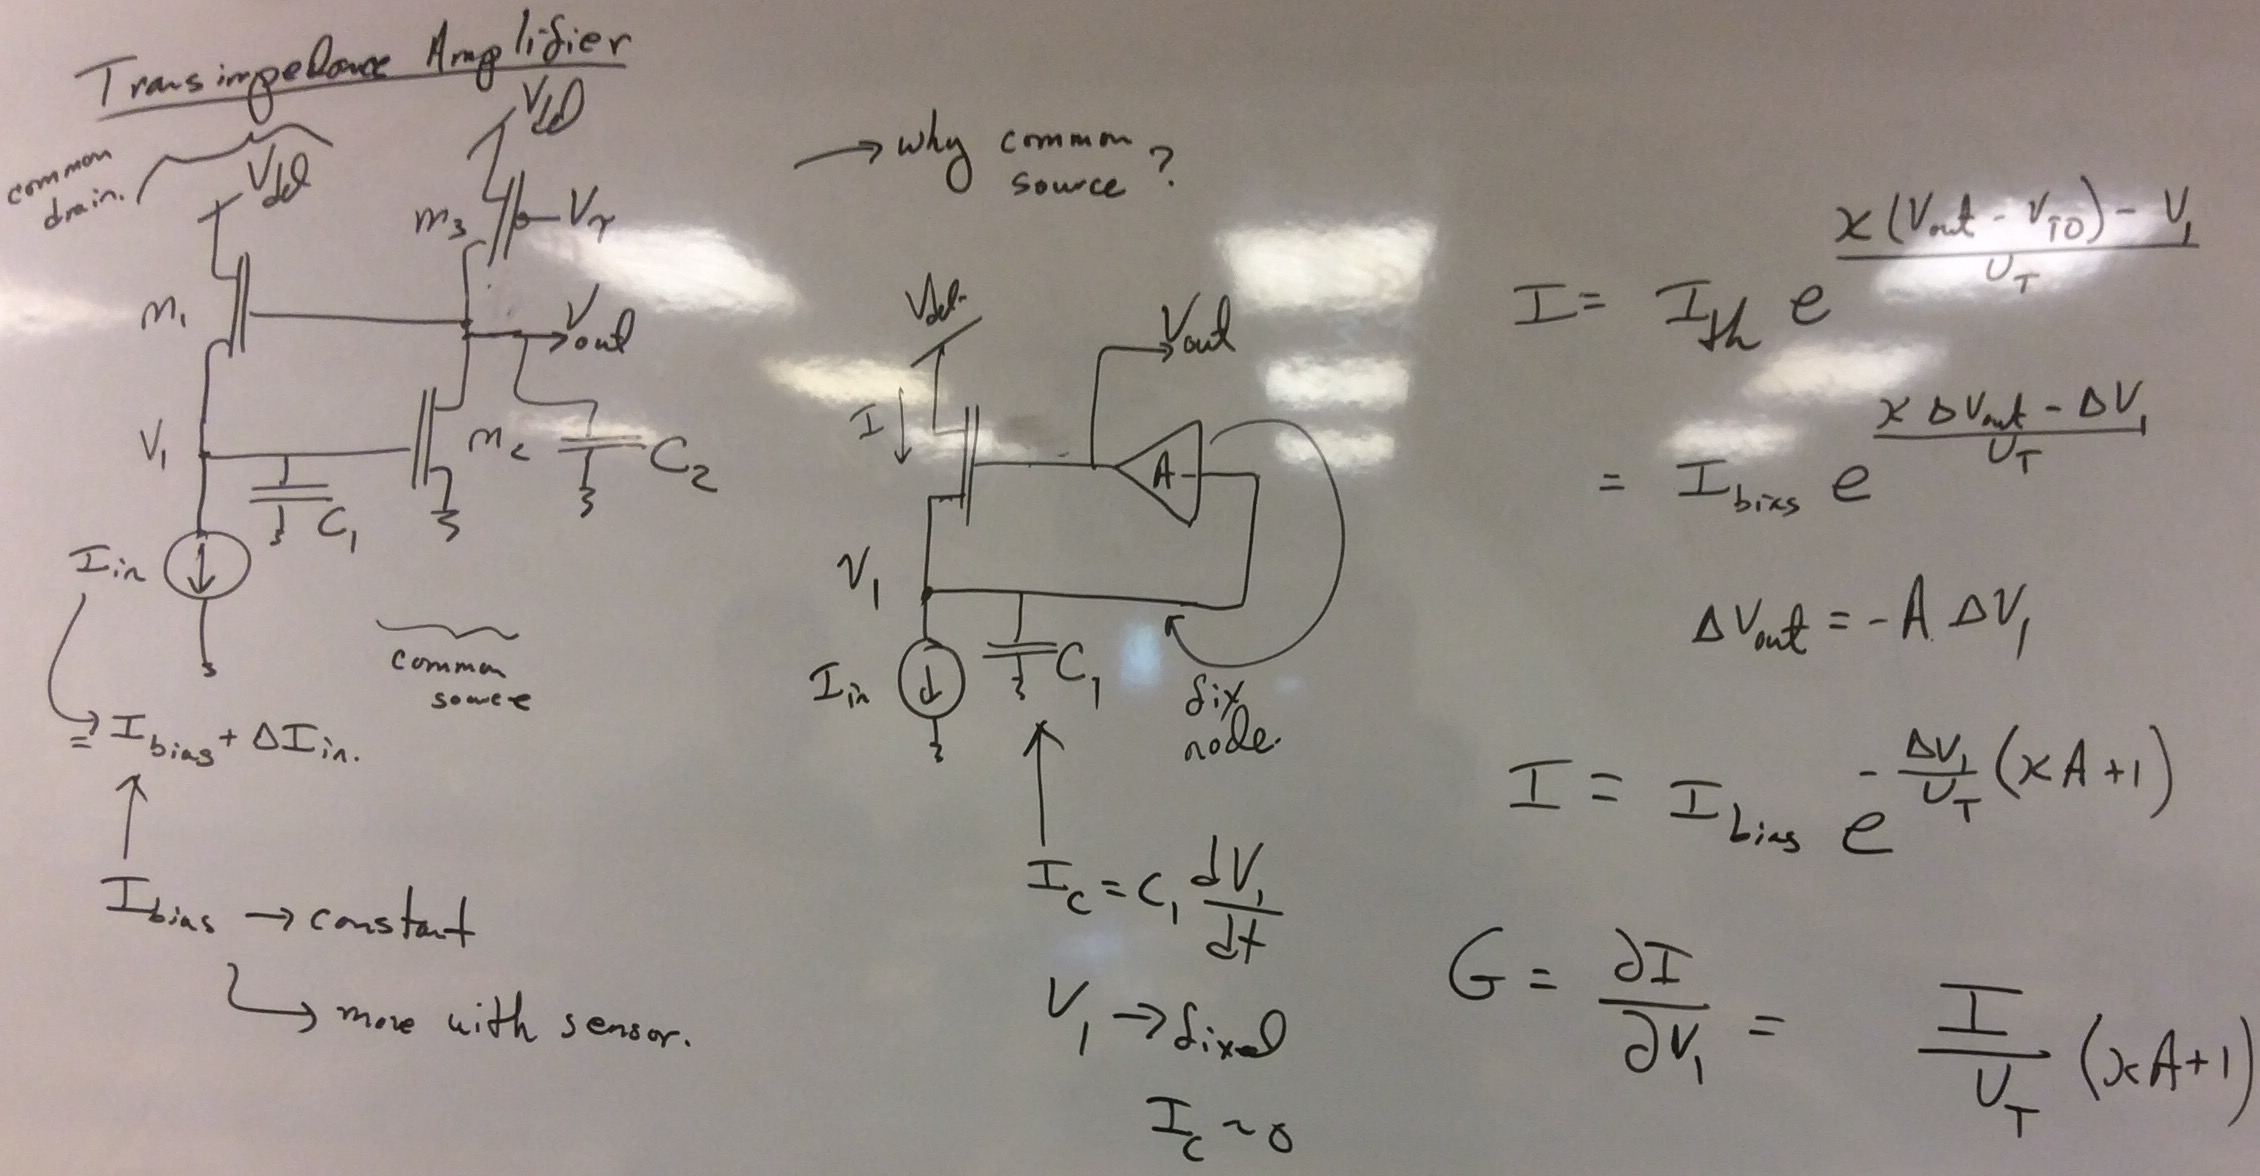 Transimpedance Amplifier
common drain.
Vdd
Vdd
M3
Vτ
M1
Vout
V1
M2
C2
C1
Iin
common
source
= Ibias + ΔIin.
Ibias → constant
→ move with sensor.
→ why common
source?
Vdd
Vout
I
A
V1
Iin
C1
fix
node.
Ic = C1 dV1/dt
V1 → fixed
Ic ~ 0
I = Ith e^((κ(Vout - VT0) - V1)/UT)
= Ibias e^((κΔVout - ΔV1)/UT)
ΔVout = -A ΔV1
I = Ibias e^(-(ΔV1/UT)(κA+1))
G = ∂I/∂V1 = I/UT (κA+1)